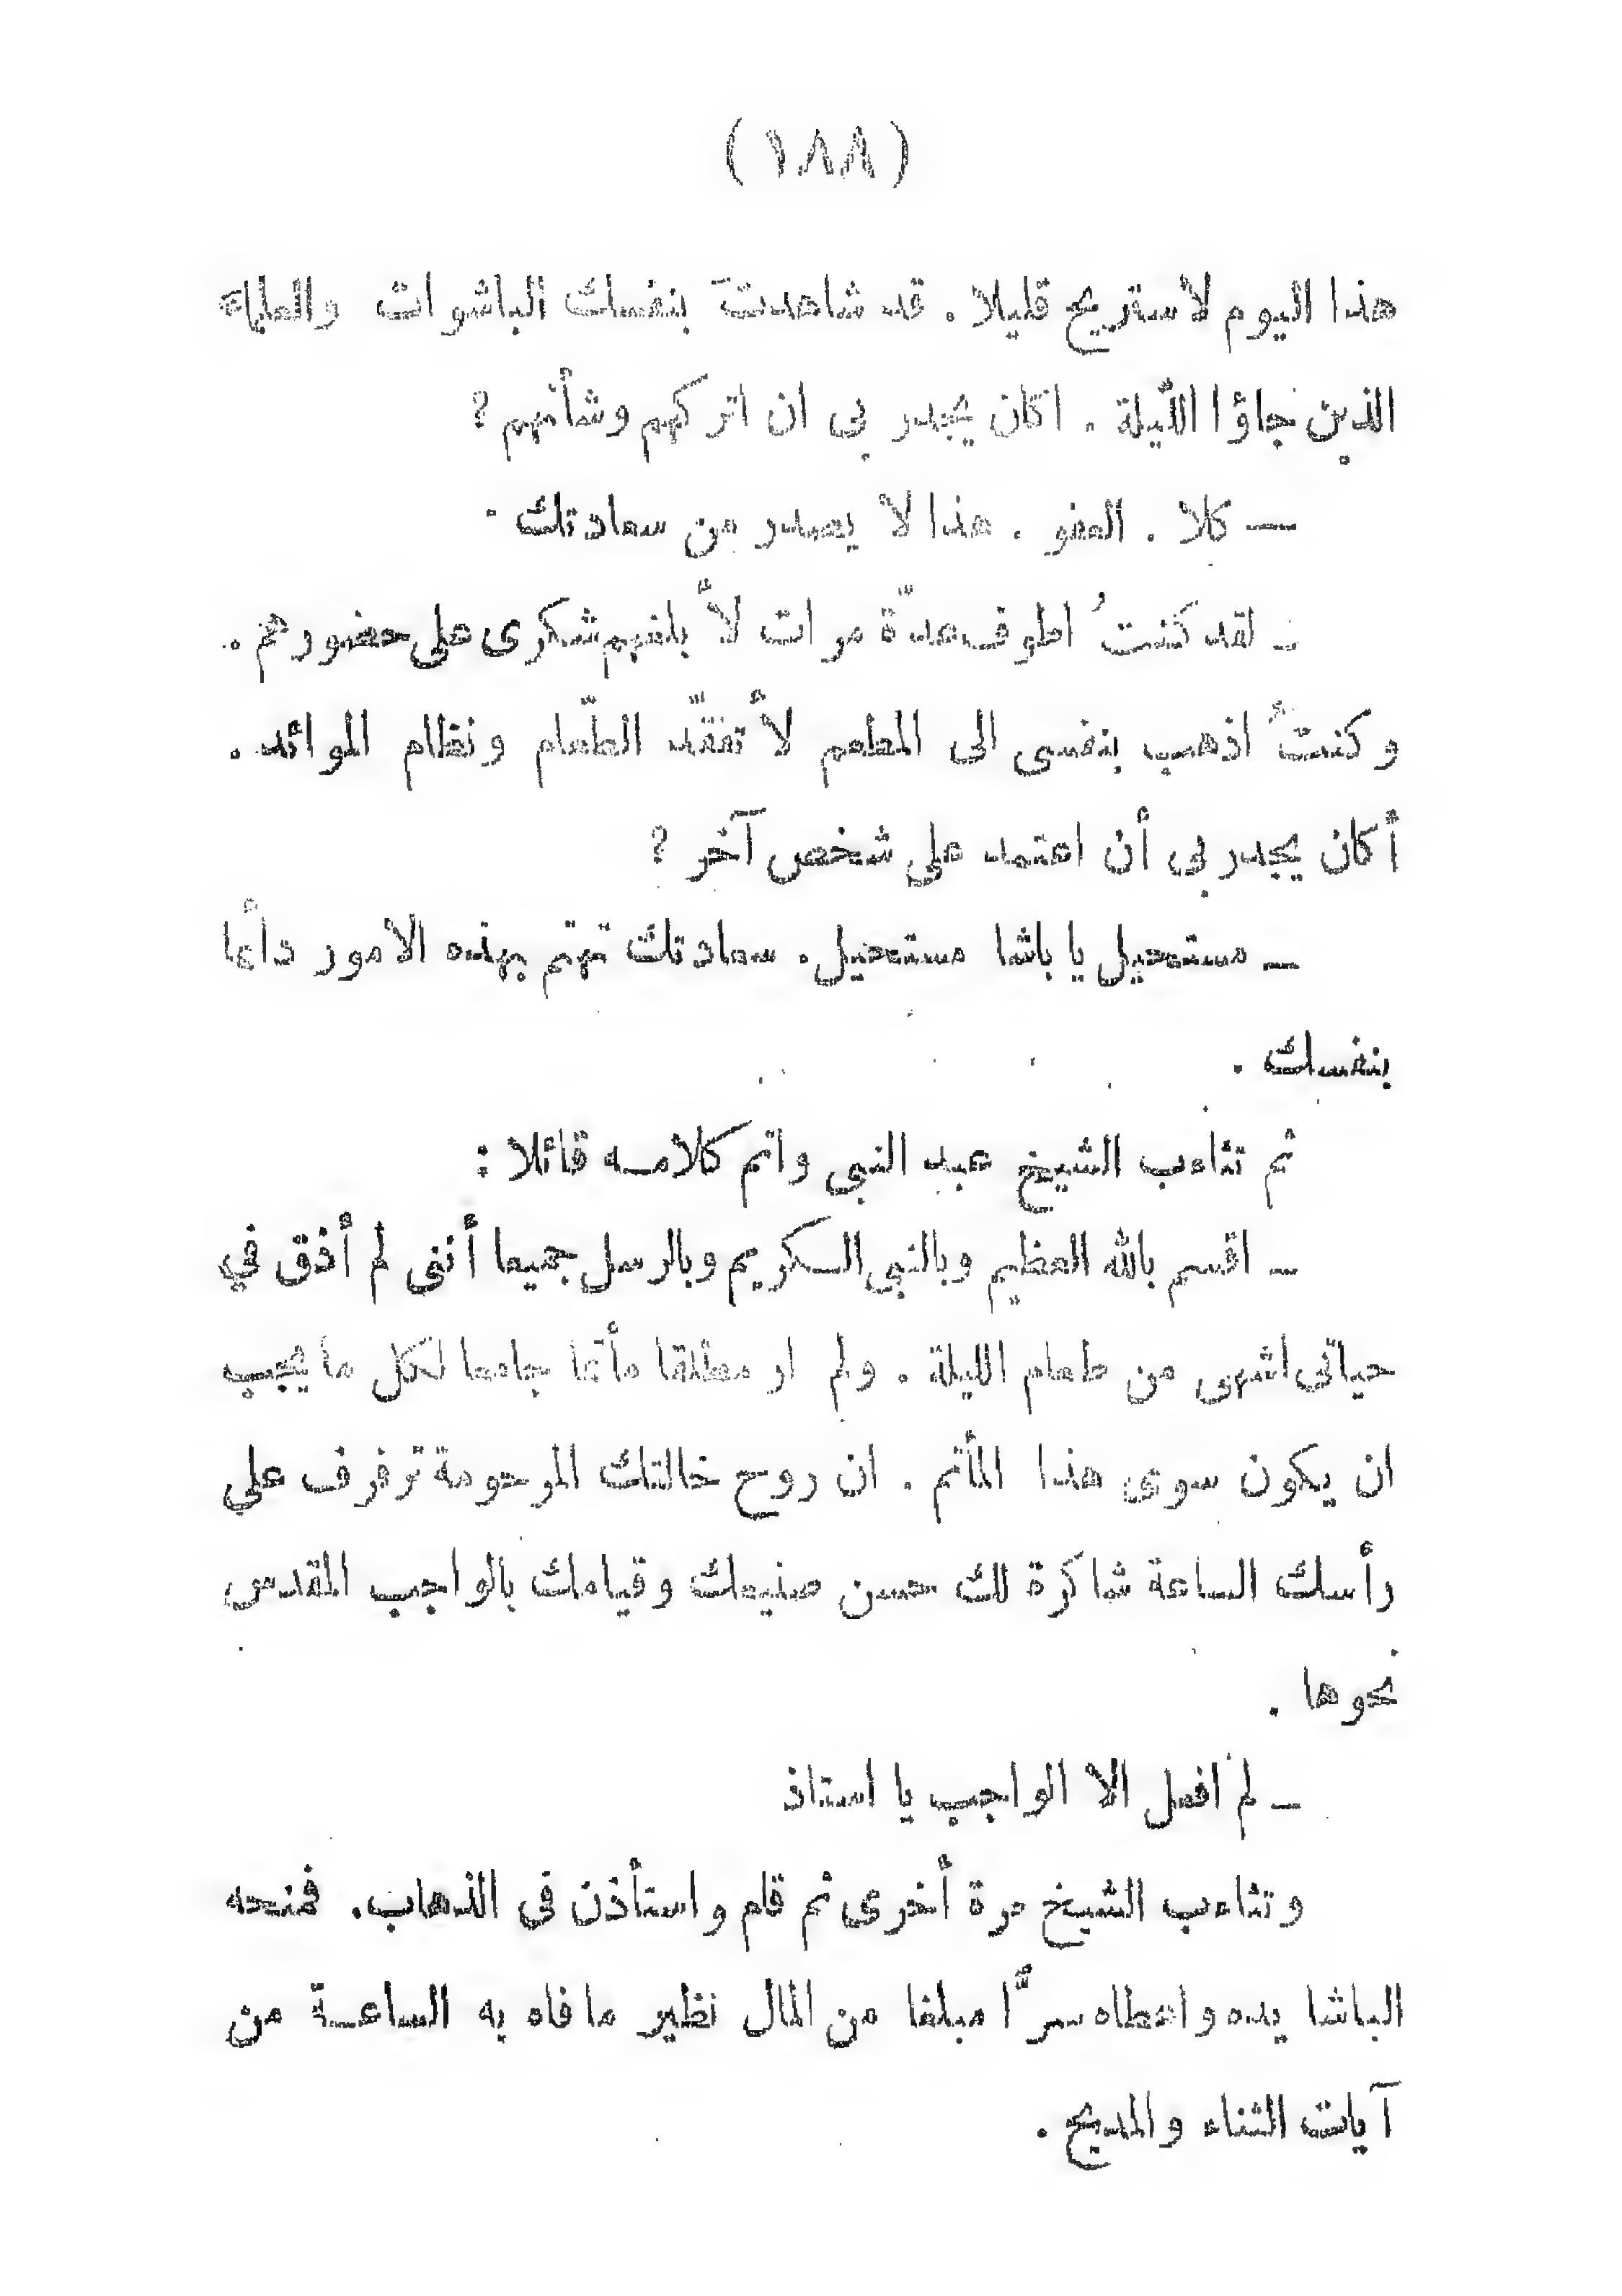 (١٨٨)
هذا اليوم لاستريح قليلا. قد شاهدتَ بنفسك الباشوات والعلماء
الذين جاؤا الليلة. اكان يجدر بى ان اتركهم وشأنهم؟
— كلا. العفو. هذا لا يصدر من سعادتك.
ـ لقد كنتُ اطوف عدّة مرات لأبلغهم شكرى على حضورهم.
وكنتُ اذهب بنفسى الى المطعم لأتفقّد الطّعام ونظام الموائد.
أكان يجدر بى أن اعتمد على شخص آخر؟
ـ مستحيل يا باشا مستحيل. سعادتك تهتم بهذه الامور دائما
بنفسك.
ثم تثاءب الشيخ عبد النبى واتم كلامه قائلا:
ـ اقسم بالله العظيم وبالنبى الكريم وبالرسل جميعا أننى لم أذق في
حياتى اشهى من طعام الليلة. ولم ار مطلقا مأتما جامعا لكل ما يجب
ان يكون سوى هذا المأتم. ان روح خالتك المرحومة ترفرف علي
رأسك الساعة شاكرة لك حسن صنيعك وقيامك بالواجب المقدس
نحوها.
ـ لم افعل الا الواجب يا استاذ
وتثاءب الشيخ مرة أخرى ثم قام واستأذن فى الذهاب. فمنحه
الباشا يده واعطاه سرًّا مبلغا من المال نظير ما فاه به الساعة من
آيات الثناء والمديح.